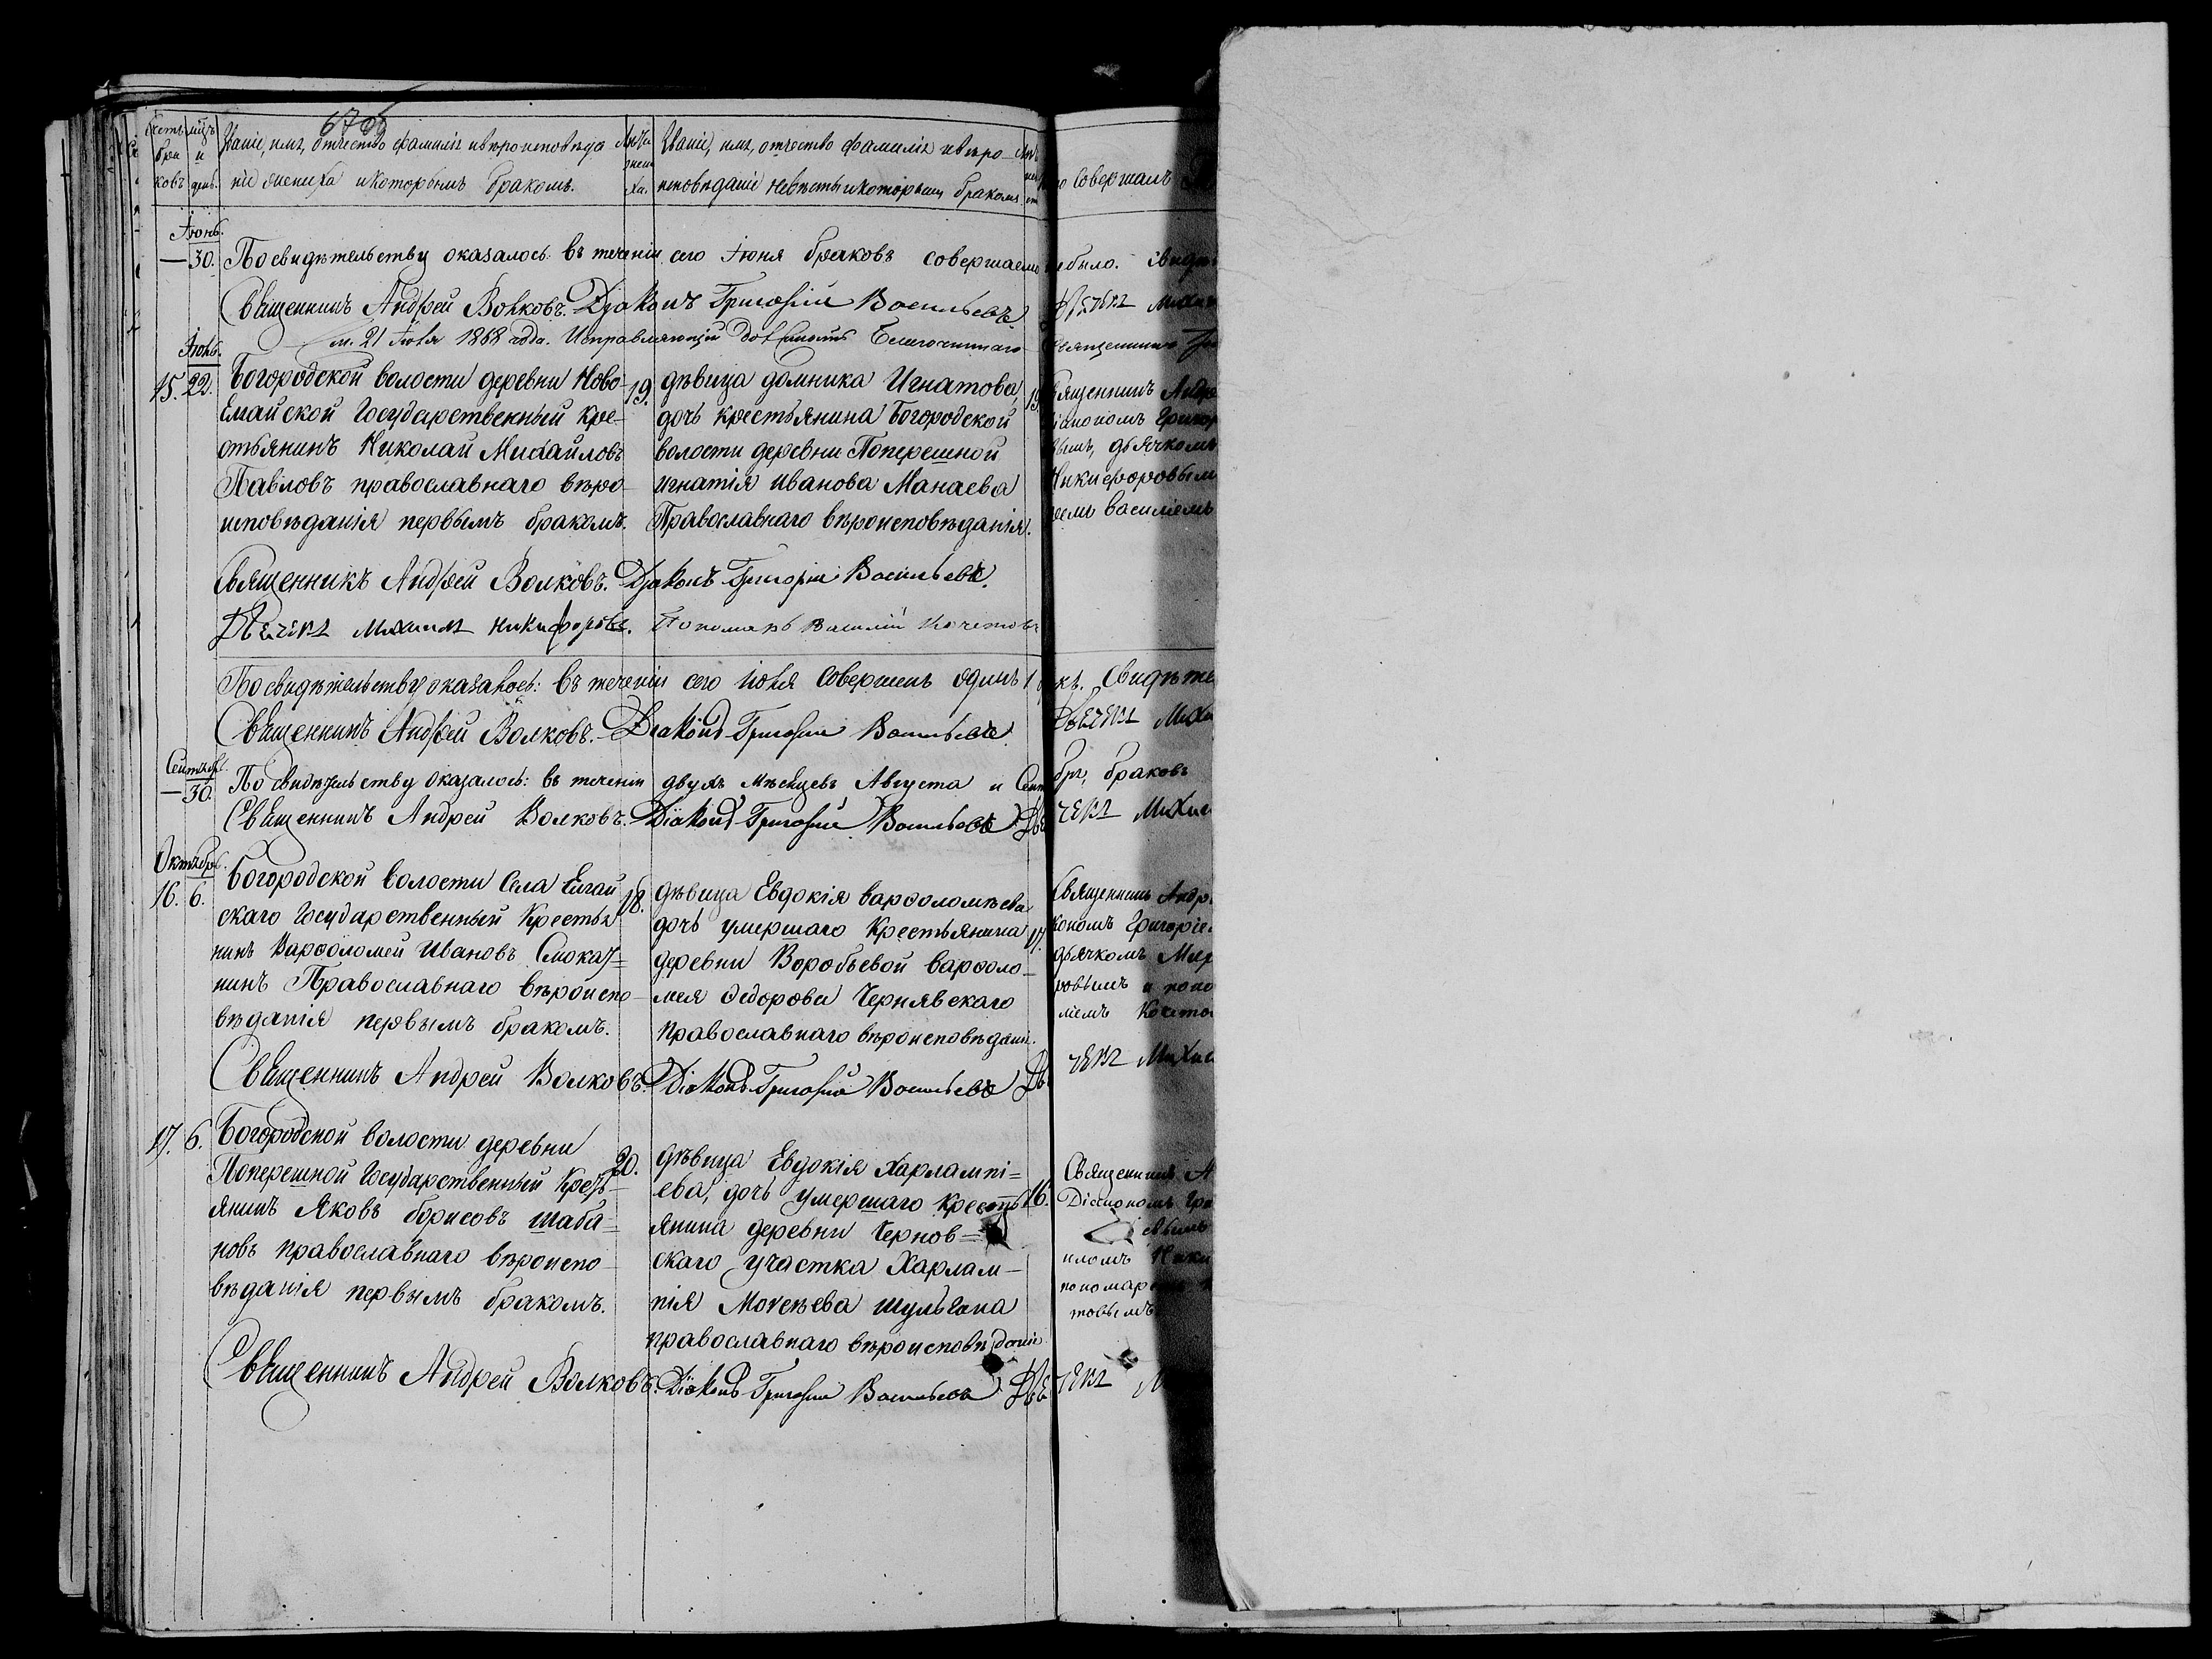 67 об
Счетъ браковъ
мцъ и день.
Званіе, имя, отчество фамилія и вѣроисповѣда
ніе жениха и которымъ бракомъ.
Званіе, имя, отчество фамилія и вѣро-
исповѣданіе невѣсты и которымъ бракомъ
совершалъ
Іюнь.
— 30. По свидѣтельству оказалось: въ теченіи сего Іюня браковъ совершаемо небыло.
Священникъ Андрей Волковъ. Діаконъ Григорій Васильевъ.
21 Іюля 1868 года. Исправляющій должность Благочиннаго Священникъ
Іюль.
15. 22. Богородской волости деревни Ново-
Елгайской Государственный Кре-
стьянинъ Николай Михайловъ
Павловъ православнаго вѣро-
исповѣданія первымъ бракомъ.
19.
дѣвица домника Игнатова,
дочь крестьянина Богородской
волости деревни Поперешной
игнатія иванова Манаева
Православнаго вѣроисповѣданія.
19.
Священникъ Андре
діакономъ Григор
вымъ, дьячкомъ
Никифоровым
василіемъ
Священникъ Андрей Волковъ. Діаконъ Григорій Васильевъ.
Дьячекъ Михаилъ Никифоровъ. Пономарь Василій Кочетовъ
По свидѣтельству оказалось: въ теченіи сего іюля совершенъ одинъ 1 Свидѣте
Священникъ Андрей Волковъ. Діаконъ Григорій Васильевъ. Дьячекъ Миха
Сентябрь.
— 30. По свидѣтельству оказалось: въ теченіи двухъ мѣсяцевъ Августа и Сентября, браковъ
Священникъ Андрей Волковъ. Діаконъ Григорій Васильевъ. Дьячекъ Михаи
Октябрь.
16. 6. Богородской волости Села Елгай
скаго Государственный Крестья
нинъ Варѳоломей Ивановъ Смокат=
нинъ Православнаго вѣроиспо-
вѣданія первымъ бракомъ.
18.
дѣвица Евдокія варѳоломѣева
дочь умершаго Крестьянина
деревни Воробьевой варѳоло-
мея Ѳедорова Чернявскаго
православнаго вѣроисповѣдані.
17.
Священникъ Андр
кономъ Григоріе
дьячкомъ
ровымъ и поно
ліемъ Кочето
Священникъ Андрей Волковъ. Діаконъ Григорій Васильевъ Дьячекъ Михаи
17. 6. Богородской волости деревни
Поперешной Государственный Кресть-
янинъ Яковъ борисовъ шаба=
новъ православнаго вѣроиспо-
вѣданія первымъ бракомъ.
20.
дѣвица Евдокія Харлампі=
ева, дочь умершаго кресть
янина деревни Чернов=
скаго участка Харлам-
пія Моѵсѣева шульгина
православнаго вѣроисповѣданія
16.
Священникъ А
Діакономъ Гри
евымъ
иломъ Ники
пономар
товымъ
Священникъ Андрей Волковъ. Діаконъ Григорій Васильевъ. Дьячекъ М